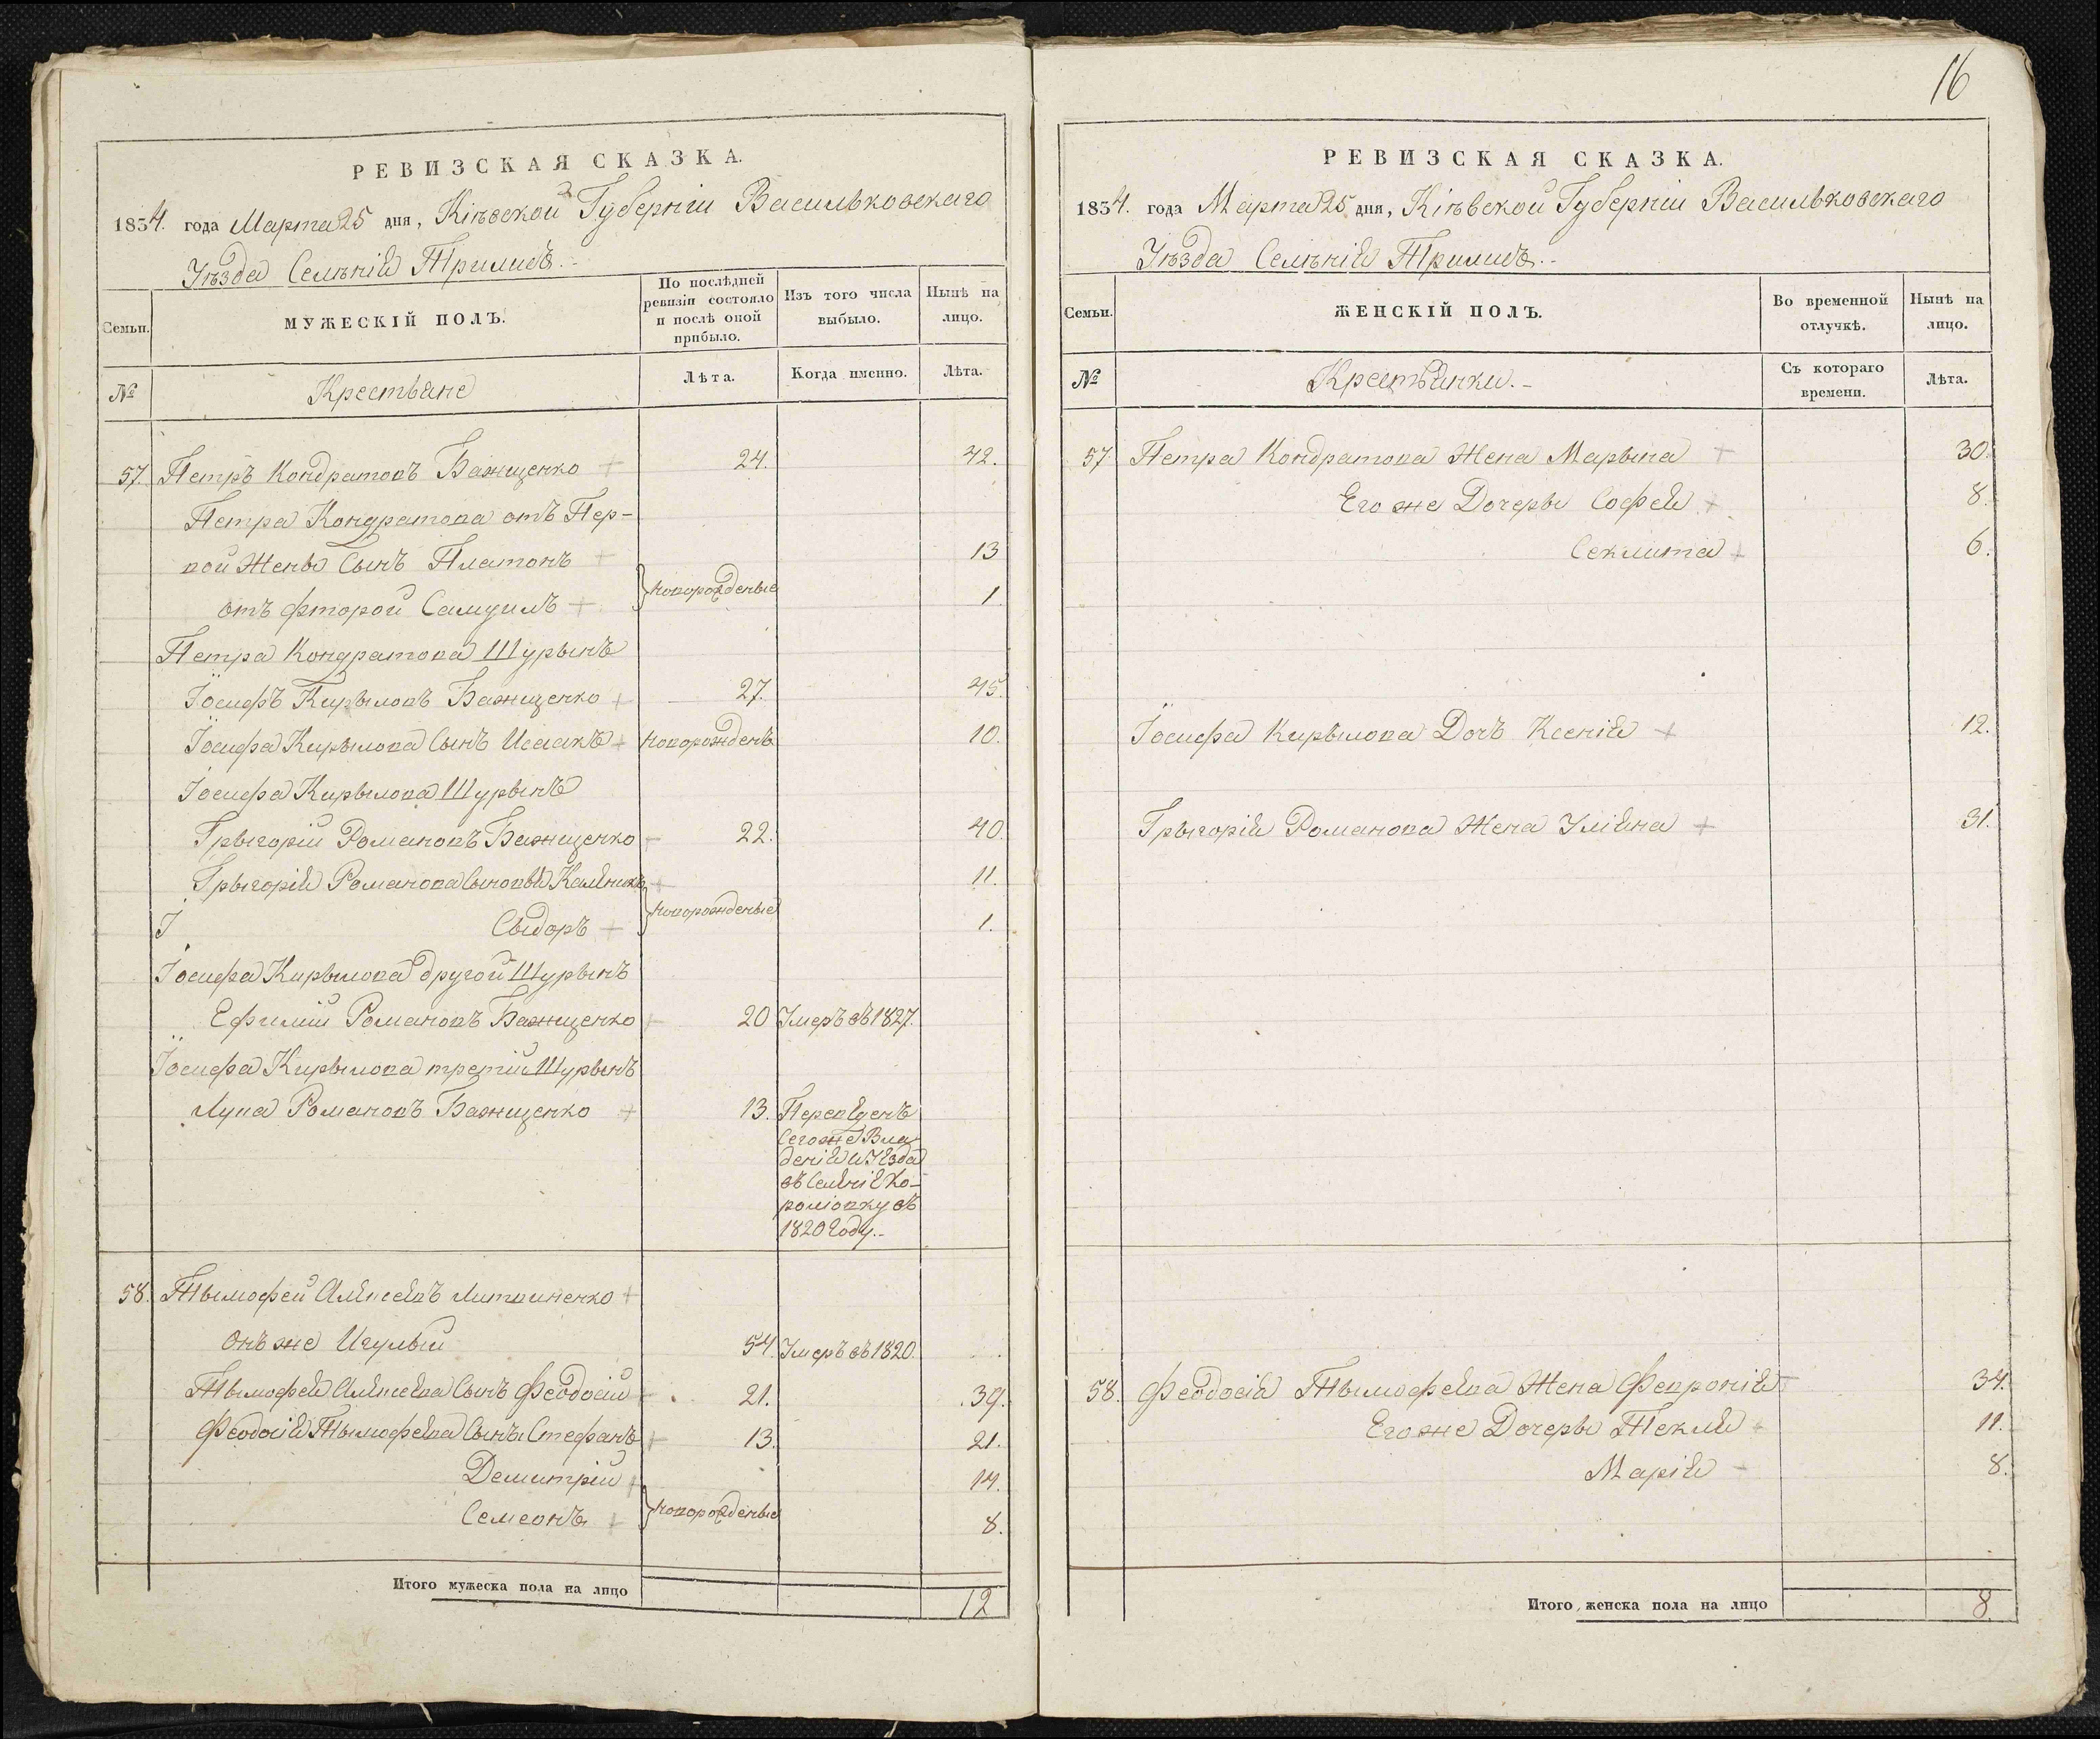 РЕВИЗСКАЯ СКАЗКА.
1834. года Марта 25 дня, Кіѣвской Губерніи Васильковскаго
Уѣзда Селѣнія Трилисъ.-
Семьи.
МУЖЕСКІЙ ПОЛЪ.
По послѣдней ревизіи состояло и послѣ оной прибыло.
Изъ того числа выбыло.
Нынѣ на лицо.
№
Крестьяне
Лѣта.
Когда именно.
Лѣта.
57. Петръ Кондратовъ Бажщенко + 24. 42.
Петра Кондратова отъ Пер-
вой Жены Сынъ Платонъ + 13
отъ фторой Самуилъ + } Новорожденые 1
Петра Кондратова Шурынъ
Іосифъ Кирыловъ Бажщенко + 27. 45.
Іосифа Кирылова Сынъ Исаакъ + Новорожденъ 10.
Іосифа Кирылова Шурынъ
Грыгорій Романовъ Бажщенко + 22. 40.
Грыгорія Романова Сыновья Калѣникъ + 11.
І Сыдоръ + } Новорожденые 1.
Іосифа Кирылова другой Шурынъ
Ефимій Романовъ Бажщенко + 20 Умеръ въ 1827.
Іосифа Кирылова третій Шурынъ
Лупа Романовъ Бажщенко + 13. Переведенъ
Сегоже Вла-
денія и Уѣзда
въ Селѣніе
въ
1820 Году.-
58. Тымофей Алѣксеевъ Литвиненко +
Онъ же Игулый 54. Умеръ въ 1820.
Тымофея Алѣксеева Сынъ Феодосій + 21. 39.
Феодосія Тымофеева Сынъ Стефанъ + 13. 21.
Демитрій + 14.
Семеонъ + } Новорожденые 8.
Итого мужеска пола на лицо 12
16
РЕВИЗСКАЯ СКАЗКА.
1834. года Марта 25 дня, Кіѣвской Губерніи Васильковскаго
Уѣзда Селѣнія Трилисъ.-
Семьи.
ЖЕНСКІЙ ПОЛЪ.
Во временной отлучкѣ.
Нынѣ на лицо.
№
Крестьянки.-
Съ котораго времени.
Лѣта.
57 Петра Кондратова Жена Марына + 30.
Его же Дочеры Софея + 8.
Секлита + 6.
Іосифа Кирылова Дочъ Ксенія + 12.
Грыгорія Романова Жена Уліяна + 31.
58. Феодосія Тымофеева Жена Февронія + 34.
Его же Дочеры Текля + 11.
Марія - 8.
Итого женска пола на лицо 8.